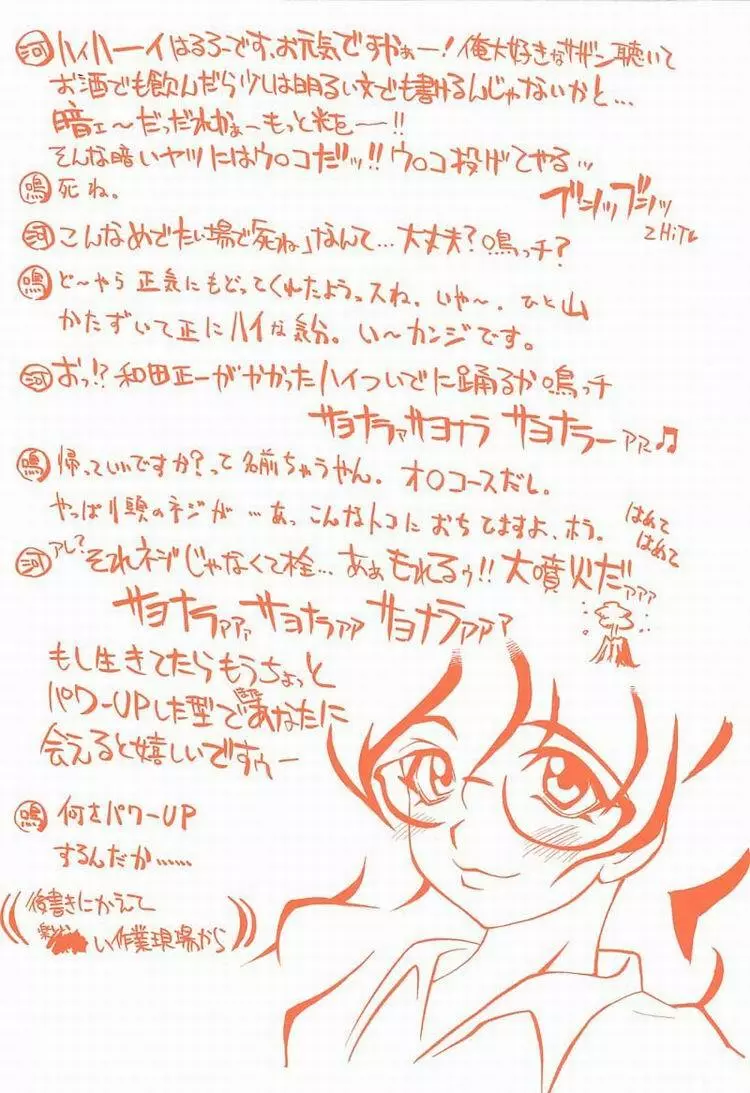 河 ハイハーイはろろーです、お元気ですかぁー!俺大好きなサザン聴いて
お酒でも飲んだら少しは明るい文でも書けるんじゃないかと…
暗ェ〜だっだれかぁーもっと粉をー!!
そんな暗いヤツにはウ○コだッ!!ウ○コ投げてやるッ
ブシッブシッ
2HiTし
鳴 死ね。
河 こんなめでたい場で死ね」なんて…大丈夫?鳴っチ?
鳴 ど〜やら正気にもどってくれたようっスね。いや〜、ひと山
かたずいて正にハイな気分。い〜カンジです。
河 おっ!?和田正一がやかったハイついでに踊るか鳴っチ
サヨナラァサヨナラ サヨナラーァァ♫
鳴 帰っていいですか?って名前ちゃうやん。オ○コースだし。
やっぱり頭のネジが…あっこんなトコにおちてますよ、ホラ。
はめて
はめて
河 アレ?それネジじゃなくて栓…あぁもれるぅ!!大噴火だァァァ
サヨナラァァァサヨナラァァァサヨナラァァァ
もし生きてたらもうちょっと
パワーUPした型であなたに
会えると嬉しいですぅー
鳴 何をパワーUP
するんだか……
後書きにかえて
い作業現場から